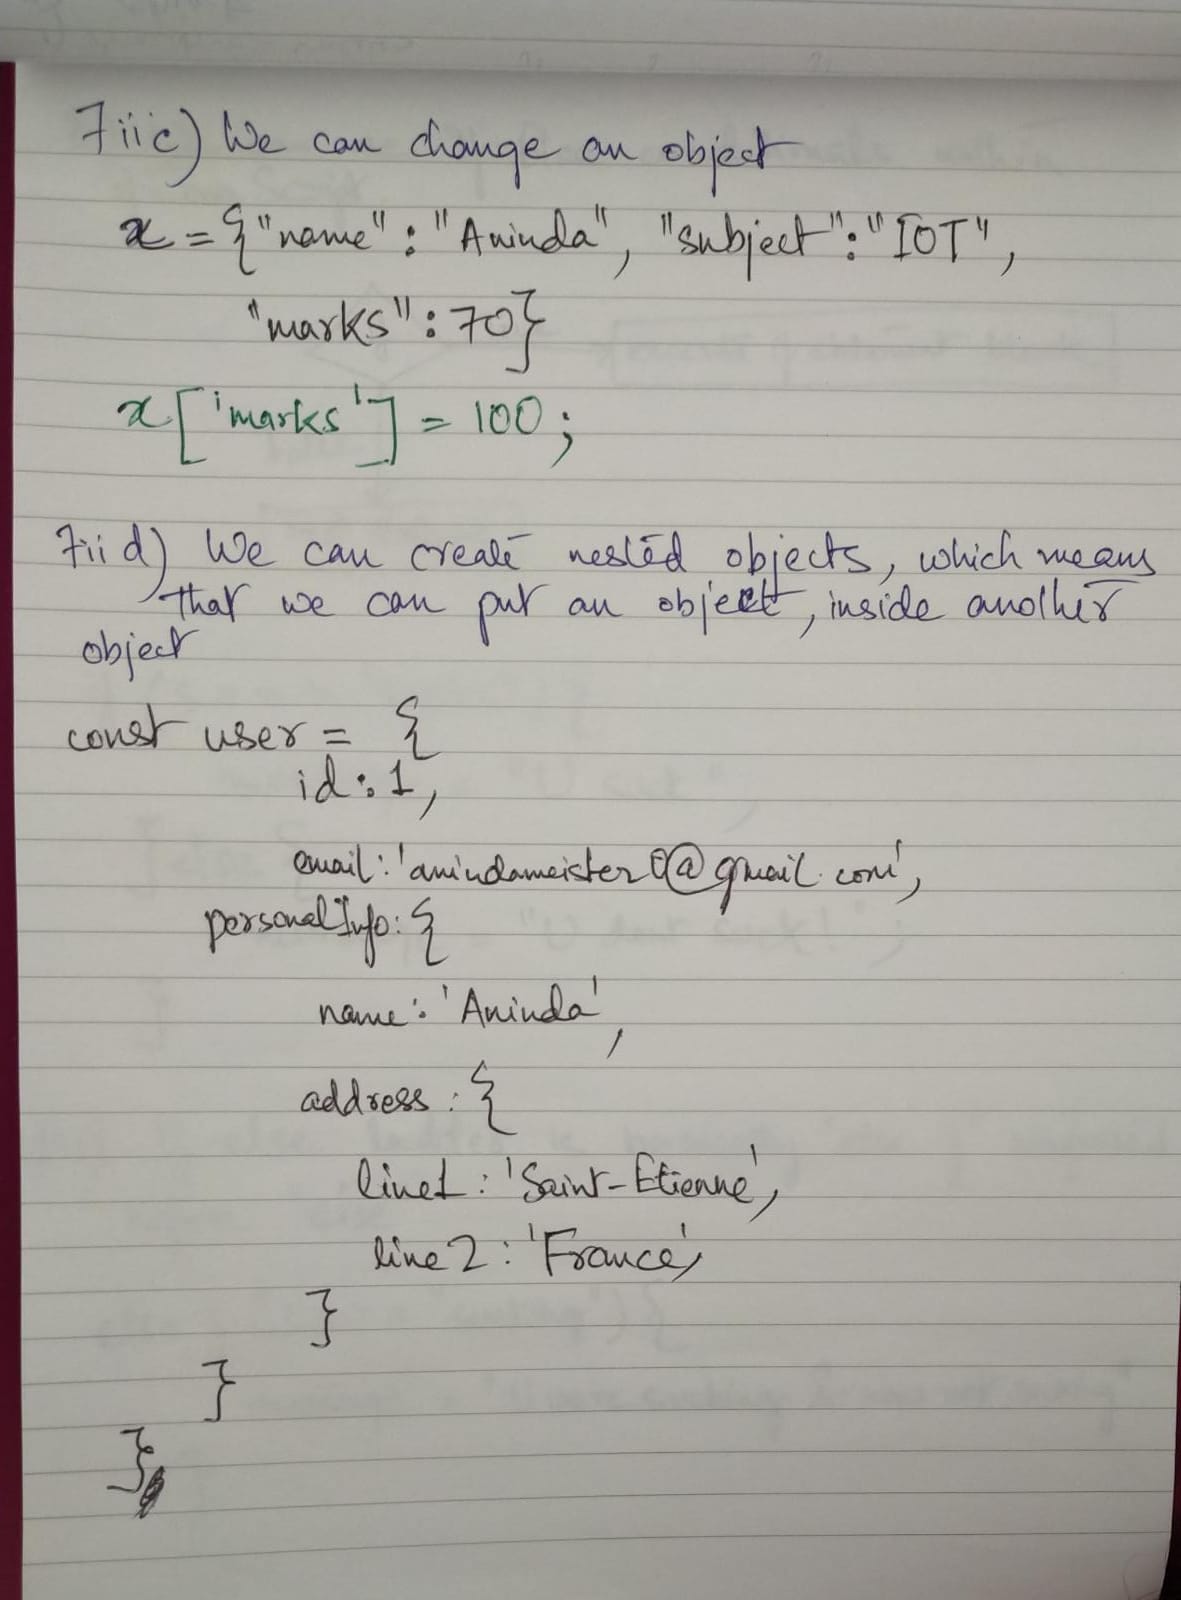 7iic) We can change an object
x = {"name" : "Aninda", "subject" : "IOT",
"marks" : 70}
x['marks'] = 100;
7ii d) We can create nested objects, which means
that we can put an object, inside another
object
const user = {
id : 1,
email : 'anindameister0@gmail.com',
personalInfo : {
name : 'Aninda',
address : {
line1 : 'Saint-Etienne',
line2 : 'France',
}
}
}